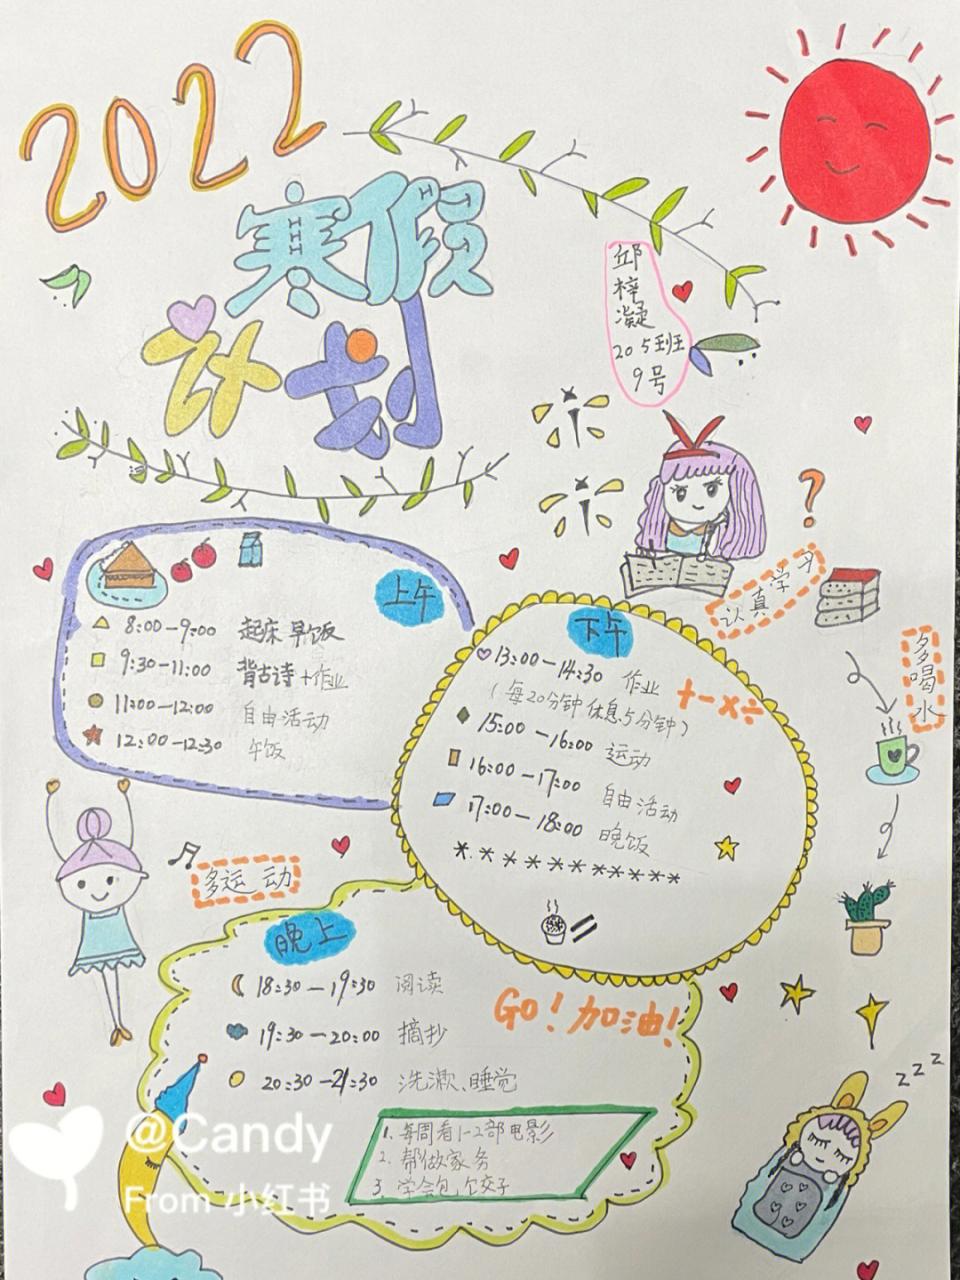 2022
寒假
计划
邱
梓
凝
205班
9号
上午
8:00-9:00 起床 早饭
9:30-11:00 背古诗+作业
11:00-12:00 自由活动
12:00-12:30 午饭
认真学习
多喝水
下午
13:00-14:30 作业
(每20分钟休息5分钟)
+-×÷
15:00-16:00 运动
16:00-17:00 自由活动
17:00-18:00 晚饭
多运动
晚上
18:30-19:30 阅读
19:30-20:00 摘抄
20:30-21:30 洗漱、睡觉
Go!加油!
1. 每周看1-2部电影
2. 帮做家务
3. 学会包饺子
zzz
@Candy
From 小红书